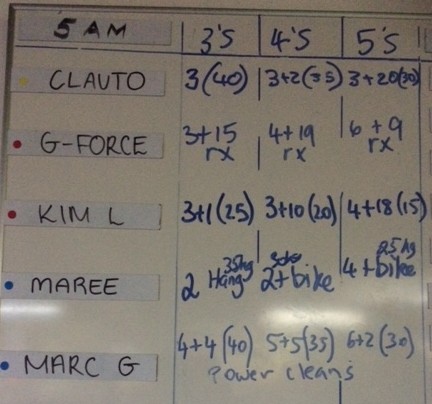 5 AM 3's 4's 5's
CLAUTO 3(40) 3+2(35) 3+20(30)
G-FORCE 3+15 rx 4+19 rx 6+9 rx
KIM L 3+1(25) 3+10(20) 4+18(15)
MAREE 2 Hang 35kg 2+bike 30kg 4+bike 25kg
MARC G 4+4(40) 5+5(35) 6+2(30)
Power cleans